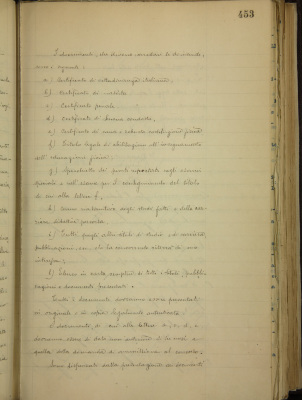 453
I documenti, che devono corredare le domande,
sono i seguenti:
a.) Certificato di cittadinanza italiana;
b.) Certificato di nascita
c.) Certificato penale
d.) Certificato di buona condotta;
e.) Certificato di sana e robusta costituzione fisica
f.) Titolo legale di abilitazione all'insegnamento
dell'educazione fisica;
g.) Specchietto dei punti riportati negli esami
speciali e nell'esame per il conseguimento del titolo
di cui alla lettera f;
h.) Cenno riassuntivo degli studi fatti e della car-
riera didattica percorsa
i.) Tutti quegli altri titoli di studio, di servizio,
pubblicazioni, ecc. che la concorrente crederà di suo
interesse;
l.) Elenco in carta semplice di tutti i titoli, pubbli-
cazioni e documenti presentati.
Tutti i documenti dovranno essere presentati
in originale o in copia legalmente autenticata.
I documenti, di cui alle lettere
dovranno essere di data non anteriore di tre mesi a
quella della domanda di ammissione al concorso.
Sono dispensati dalla presentazione dei documenti